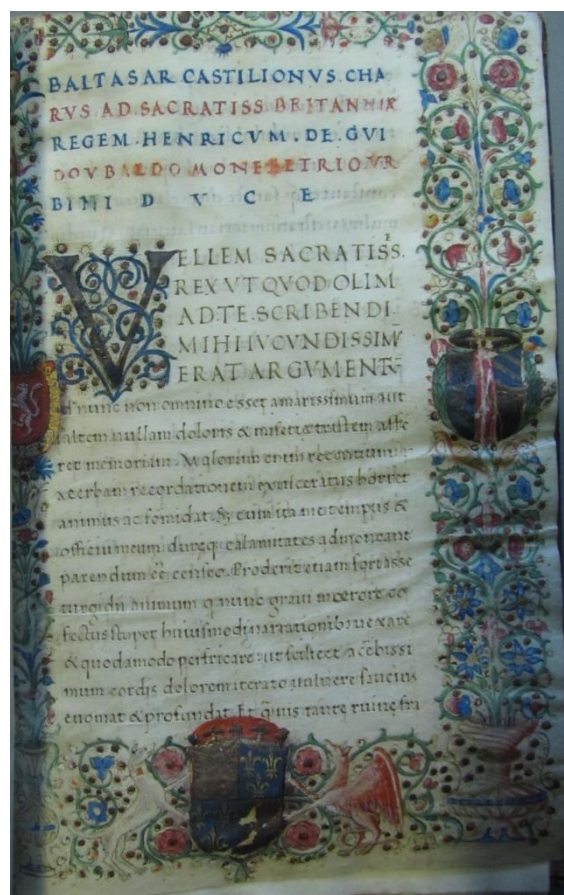 BALTASAR CASTILIONVS. CHA
RVS AD SACRATISS BRITANNIÆ
REGEM. HENRICVM. DE GVI
DOVBALDO MONEFELTRIO VR
BINI D V C E
VELLEM SACRATISS.
REX VT QVOD OLIM
AD TE. SCRIBENDI
MIHI IVCVNDISSIM̅
ERAT ARGVMENTV̅
id nunc non omnino esset amarissimum aut
saltem nullam doloris & miseriæ tristem affe
ret memoriam. Malorum enim recentium
acerbam recordationem exulceratus horret
animus ac formidat. Sed cum ita me tempus &
officium meum duræq; calamitates adhortant
parendum eē censeo. Proderit etiam fortasse
turgidū animum q nunc gravi mœrore co
fectus stupet huiusmodi narrationibus vexare
& quodamodo perfricare: ut scilicet acēbissi
mum cordis dolorem iterato vulnere saucius
evomat & profundat. Et q̄uis tante ruine